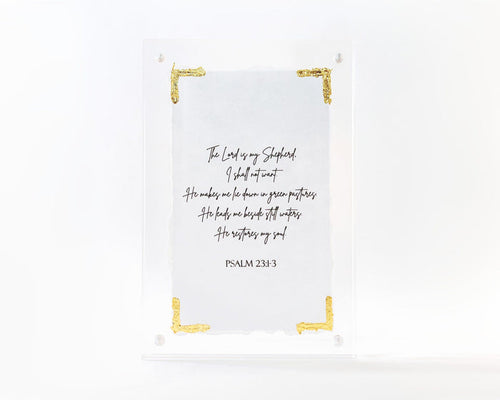 The Lord is my Shepherd,
I shall not want.
He makes me lie down in green pastures.
He leads me beside still waters.
He restores my soul.
PSALM 23:1-3